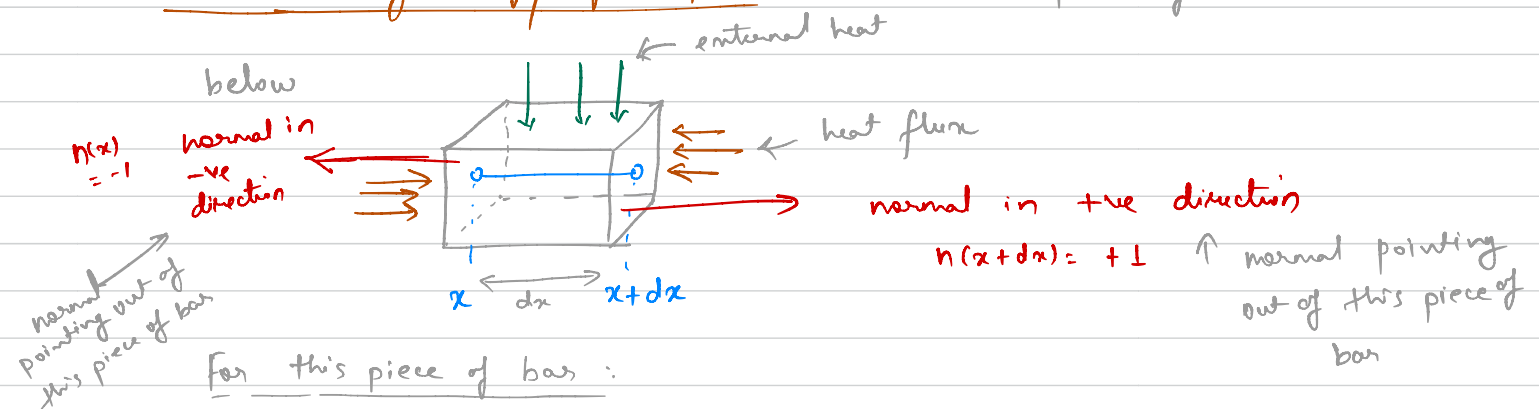 external heat
below
heat flux
n(x)
= -1
normal in
-ve
direction
normal in +ve direction
n(x+dx) = +1
↑ normal pointing
out of this piece of
bar
normal
pointing out of
this piece of bar
x
dx
x+dx
For this piece of bar :